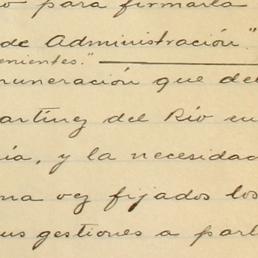 o para firmarla
de Administración."
enientes."
uneración que de
artínez del Río en
ía, y la necesidad
na vez fijados los
us gestiones a part